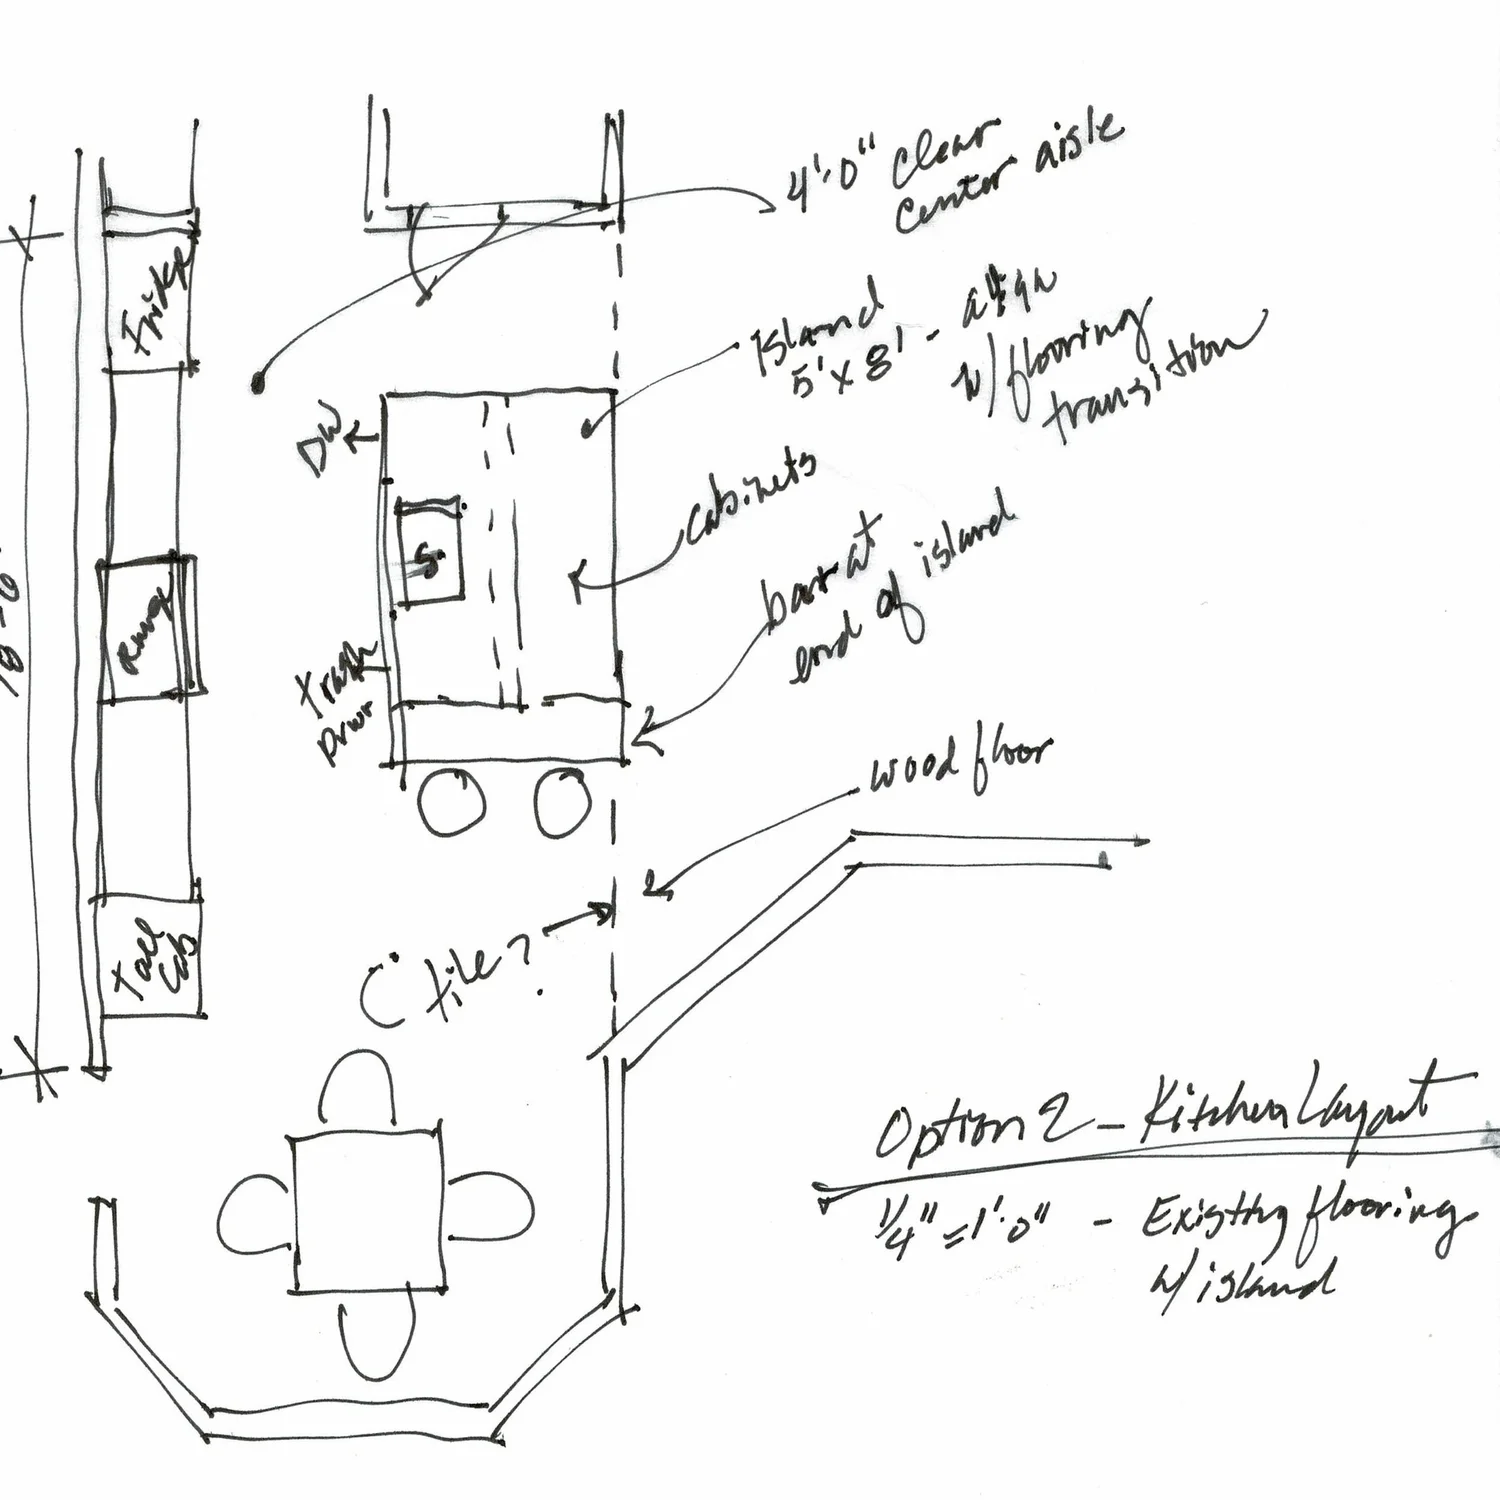 4'-0" clear
center aisle
Fridge
Island
5'x8' - align
w/flooring
transition
DW
cabinets
S
bar at
end of island
Range
18'-6"
trash
Drwr
wood floor
tile?
tall
cab
Option 2 - Kitchen Layout
1/4"=1'-0" - Existing flooring
w/ island